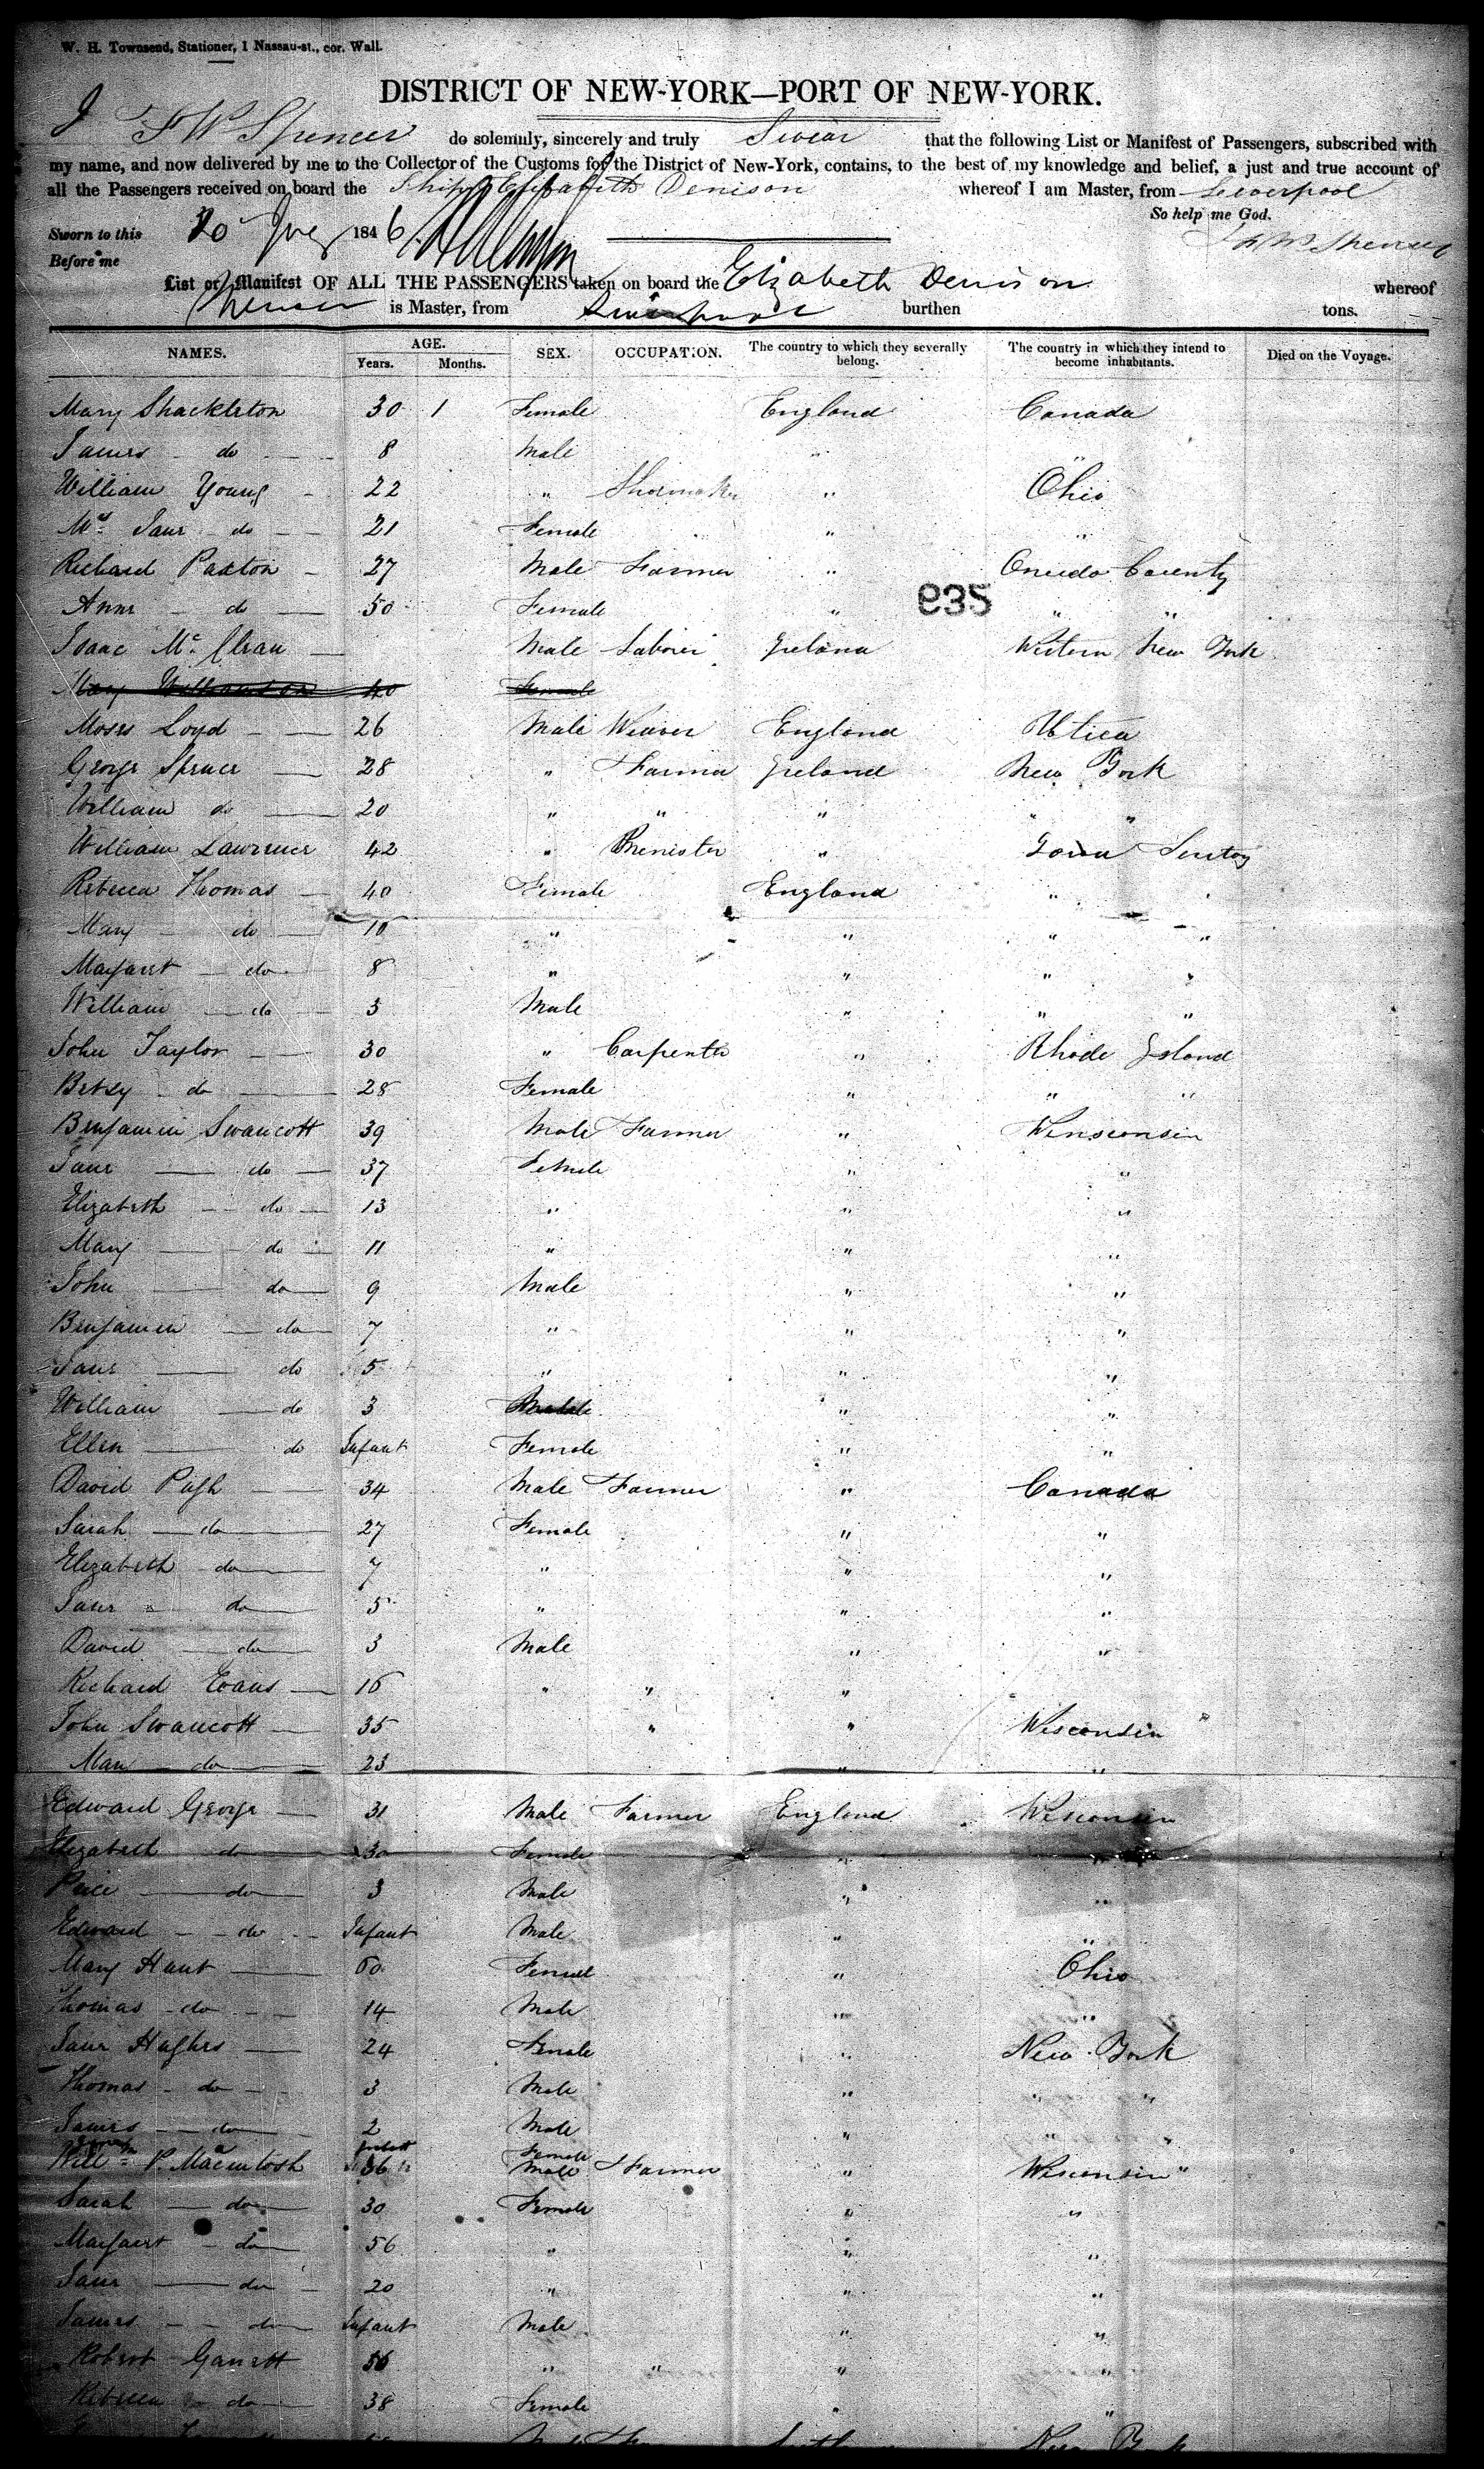 W. H. Townsend, Stationer, 1 Nassau-st., cor. Wall.
DISTRICT OF NEW-YORK—PORT OF NEW-YORK.
I F W Spencer do solemnly, sincerely and truly Swear that the following List or Manifest of Passengers, subscribed with
my name, and now delivered by me to the Collector of the Customs for the District of New-York, contains, to the best of my knowledge and belief, a just and true account of
all the Passengers received on board the Ship Elizabeth Denison whereof I am Master, from Liverpool
So help me God.
Sworn to this 20 1846 F W Spencer
Before me
List or Manifest OF ALL THE PASSENGERS taken on board the Elizabeth Denison whereof
Spencer is Master, from Liverpool burthen tons.
NAMES. AGE. Years. Months. SEX. OCCUPATION. The country to which they severally belong. The country in which they intend to become inhabitants. Died on the Voyage.
Mary Shackleton 30 1 Female England Canada
James do 8 Male "
William Young 22 " Shoemaker " Ohio
Mrs Jane do 21 Female " "
Richard Paxton 27 Male Farmer " Oneida County
Anne do 50 Female " " "
935
Isaac McClean Male Laborer Ireland Western New York
Mary Williamson 40 Female
Moses Loyd 26 Male Weaver England Utica
George Spencer 28 " Farmer Ireland New York
William do 20 " " " " "
William Lawrence 42 " "
Rebecca Thomas 40 Female England "
Mary do 10 " " " "
Margaret do 8 " " " "
William do 5 Male " " "
John Taylor 30 " Carpenter " Rhode Island
Betsy do 28 Female " " "
Benjamin Swancott 39 Male Farmer " Winsconsin
Jane do 37 Female " "
Elizabeth do 13 " " "
Mary do 11 " " "
John do 9 Male " "
Benjamin do 7 " " "
Jane do 5 " " "
William do 3 " "
Ellen do Infant Female " "
David Pugh 34 Male Farmer " Canada
Sarah do 27 Female " "
Elizabeth do 7 " " "
Jane do 5 " " "
David do 3 Male " "
Richard Evans 16 " " "
John Swancott 35 " " Wisconsin "
Mary do 23 " "
Edward George 31 Male Farmer England Wisconsin
Elizabeth do 30 Female "
Price do 3 Male " "
Edward do Infant Male " "
Mary Hant 60 Female " Ohio
Thomas do 14 Male " "
Jane Hughes 24 Female " New York
Thomas do 3 Male " " "
James do 2 Male " " "
Infant Female
Willm P. Macintosh 36 Male Farmer " Wisconsin "
Sarah do 30 Female " "
Margaret do 56 " " "
Jane do 20 " " "
James do Infant Male " "
Robert Garrett 56 " " " "
Rebecca do 38 Female " "
New York